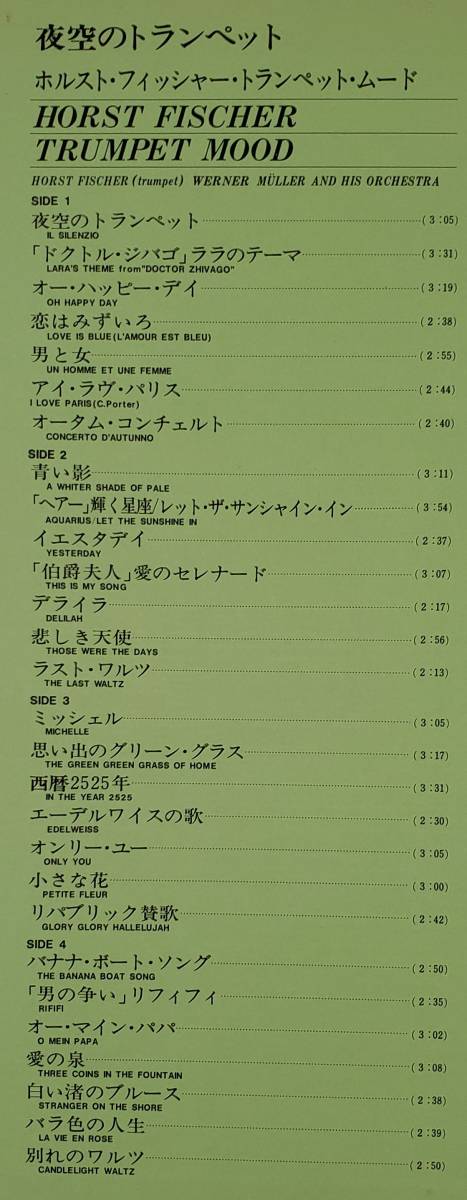 夜空のトランペット
ホルスト・フィッシャー・トランペット・ムード
HORST FISCHER
TRUMPET MOOD
HORST FISCHER (trumpet) WERNER MÜLLER AND HIS ORCHESTRA
SIDE 1
夜空のトランペット (3:05)
IL SILENZIO
「ドクトル・ジバゴ」ララのテーマ (3:31)
LARA'S THEME from "DOCTOR ZHIVAGO"
オー・ハッピー・デイ (3:19)
OH HAPPY DAY
恋はみずいろ (2:38)
LOVE IS BLUE (L'AMOUR EST BLEU)
男と女 (2:55)
UN HOMME ET UNE FEMME
アイ・ラヴ・パリス (2:44)
I LOVE PARIS (C.Porter)
オータム・コンチェルト (2:40)
CONCERTO D'AUTUNNO
SIDE 2
青い影 (3:11)
A WHITER SHADE OF PALE
「ヘアー」輝く星座/レット・ザ・サンシャイン・イン (3:54)
AQUARIUS/LET THE SUNSHINE IN
イエスタデイ (2:37)
YESTERDAY
「伯爵夫人」愛のセレナード (3:07)
THIS IS MY SONG
デライラ (2:17)
DELILAH
悲しき天使 (2:56)
THOSE WERE THE DAYS
ラスト・ワルツ (2:13)
THE LAST WALTZ
SIDE 3
ミッシェル (3:05)
MICHELLE
思い出のグリーン・グラス (3:17)
THE GREEN GREEN GRASS OF HOME
西暦2525年 (3:31)
IN THE YEAR 2525
エーデルワイスの歌 (2:30)
EDELWEISS
オンリー・ユー (3:05)
ONLY YOU
小さな花 (3:00)
PETITE FLEUR
リパブリック賛歌 (2:42)
GLORY GLORY HALLELUJAH
SIDE 4
バナナ・ボート・ソング (2:50)
THE BANANA BOAT SONG
「男の争い」リフィフィ (2:35)
RIFIFI
オー・マイン・パパ (3:02)
O MEIN PAPA
愛の泉 (3:08)
THREE COINS IN THE FOUNTAIN
白い渚のブルース (2:38)
STRANGER ON THE SHORE
バラ色の人生 (2:39)
LA VIE EN ROSE
別れのワルツ (2:50)
CANDLELIGHT WALTZ